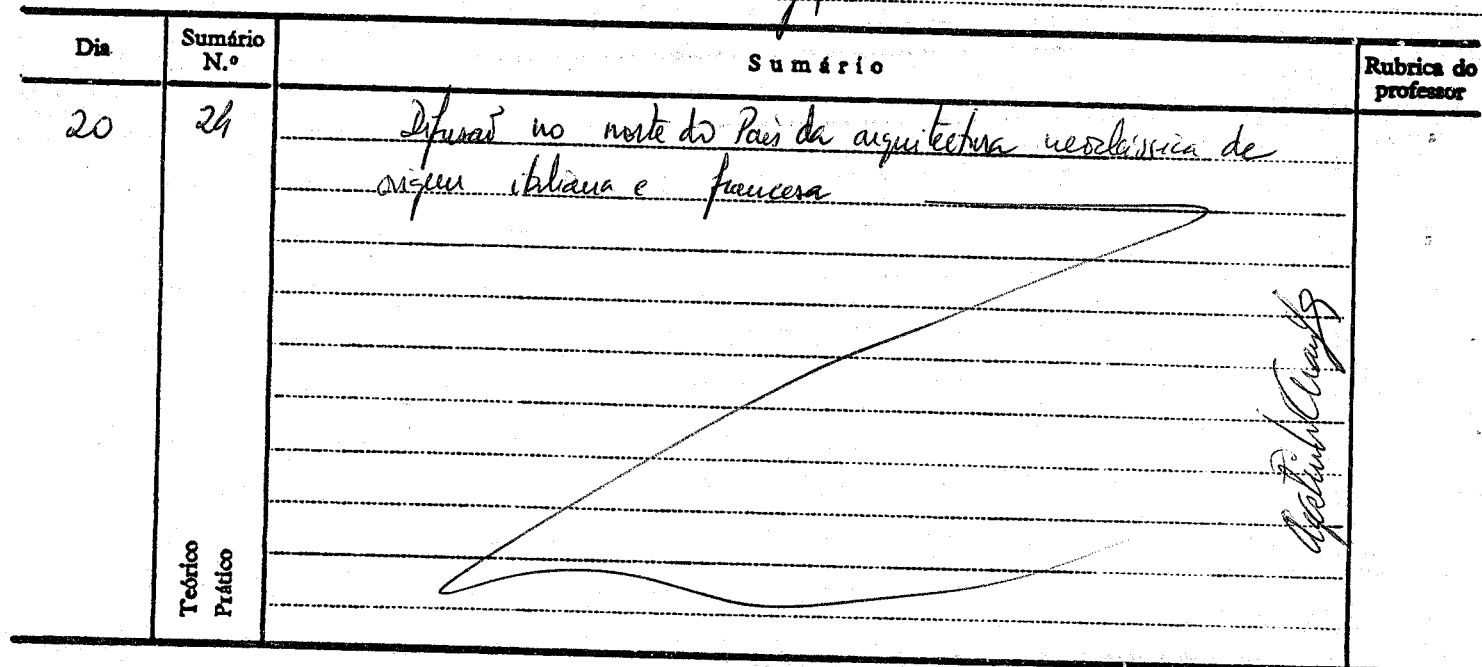 Dia
Sumário N.º
Sumário
Rubrica do professor
20
24
Difusão no norte do País da arquitectura neoclássica de
origem italiana e francesa
Teórico
Prático